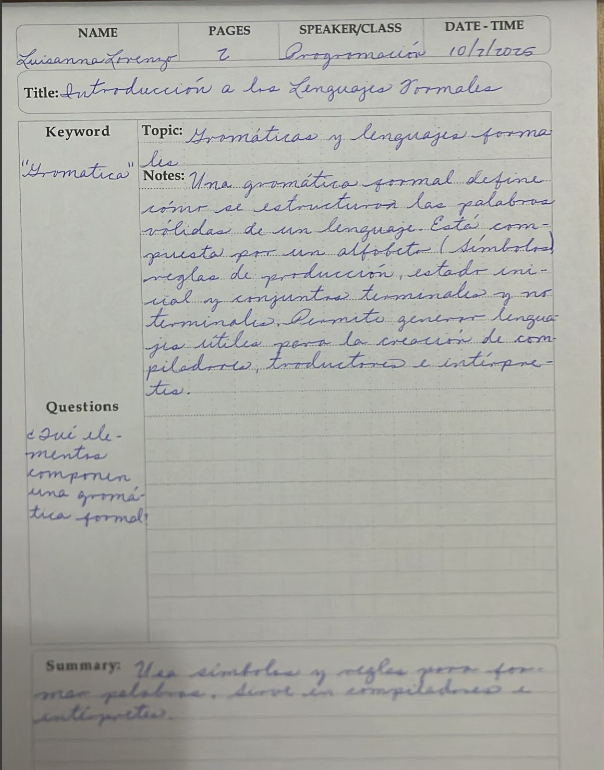 NAME PAGES SPEAKER/CLASS DATE - TIME
Luisanna Lorenzo 2 Programación 10/7/2025
Title: Introducción a los Lenguajes Formales
Keyword
"Gramática"
Topic: Gramáticas y lenguajes forma-
les
Notes: Una gramática formal define
cómo se estructuran las palabras
válidas de un lenguaje. Está com-
puesta por un alfabeto (símbolos)
reglas de producción, estado ini-
cial y conjuntos terminales y no
terminales. Permite generar lengua-
jes útiles para la creación de com-
piladores, traductores e intérpre-
tes.
Questions
¿Qué ele-
mentos
componen
una gramá-
tica formal?
Summary: Usa símbolos y reglas para for-
mar palabras. Sirve en compiladores e
intérpretes.